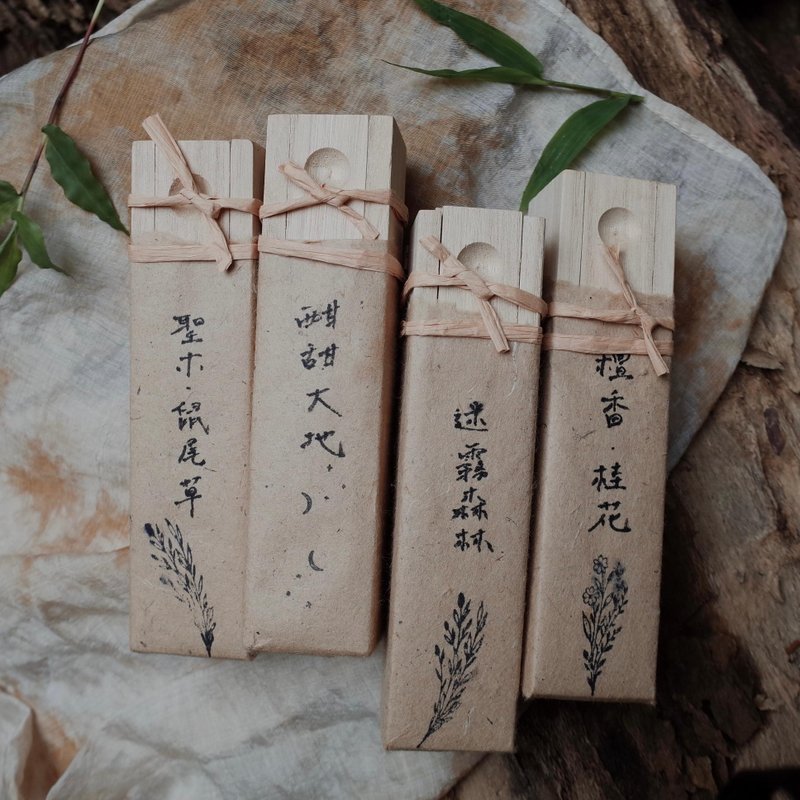 聖木·鼠尾草
酣甜大地
迷霧森林
檀香·桂花